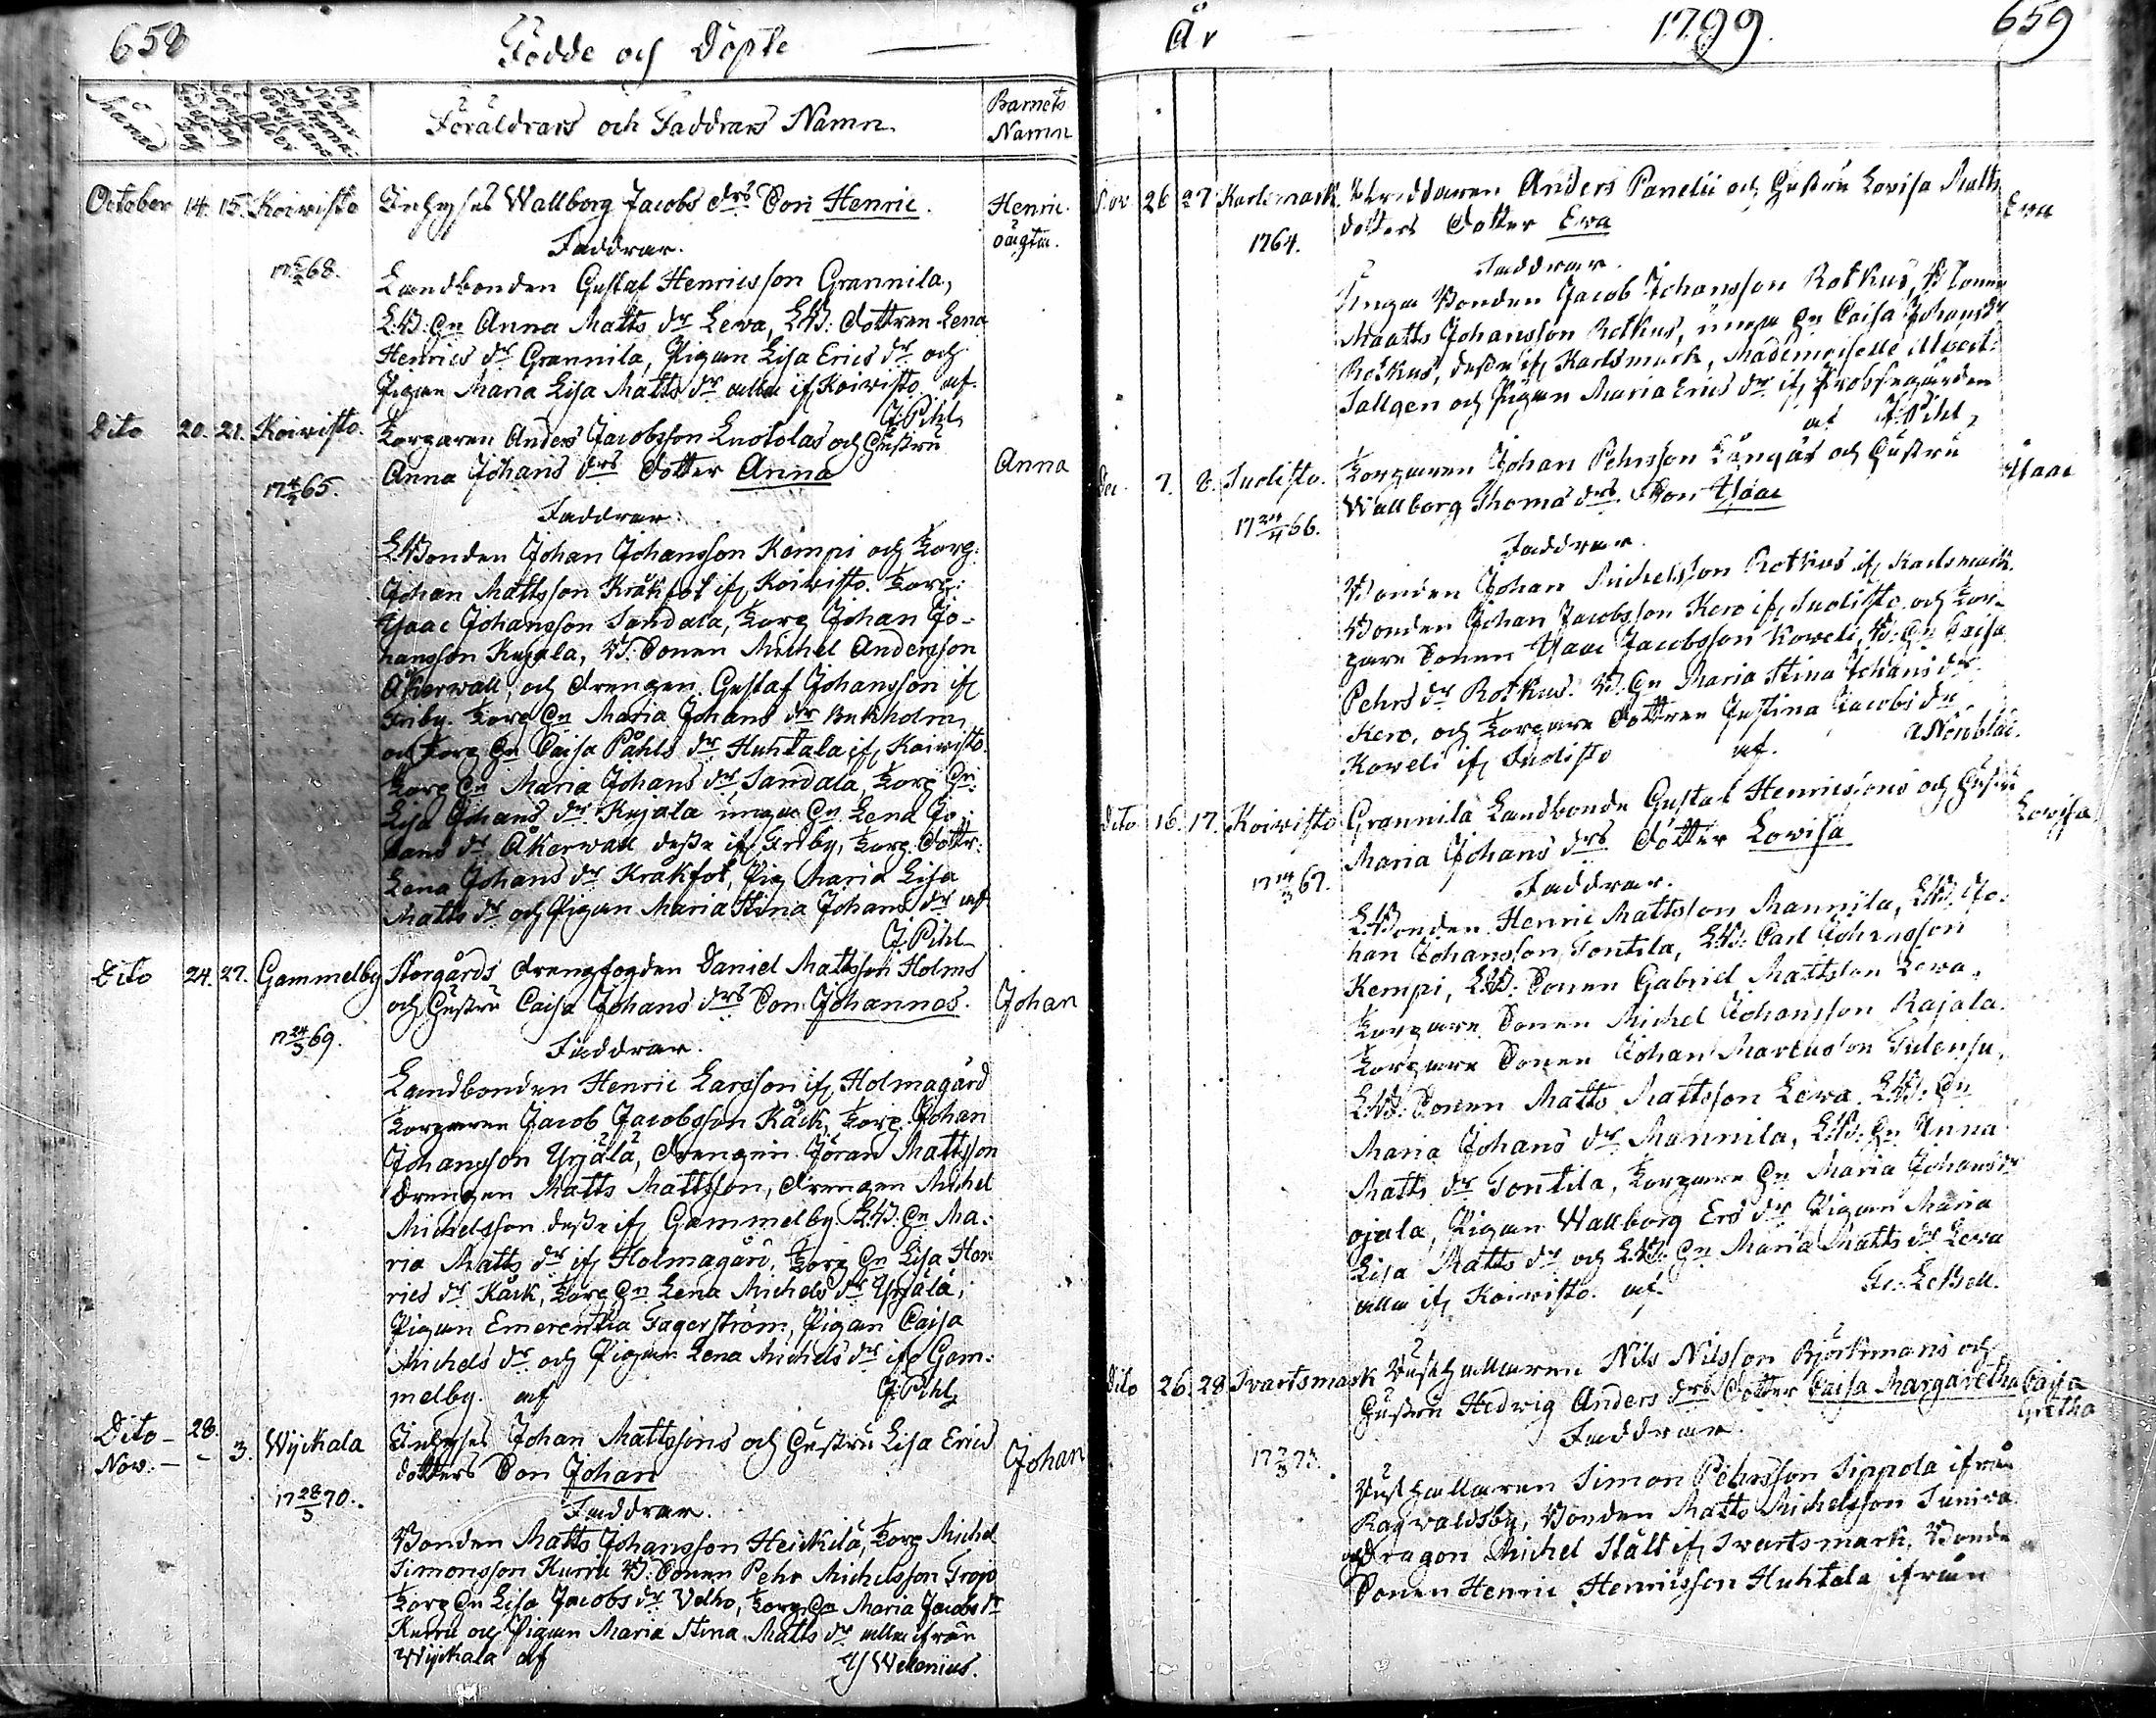 658
Födde och Döpte
Månad
Födelse Dag
Döpelse Dag
Föräldrars och Faddrars Namn.
Barnets
Namn
October 14. 15. Koivisto Inhyses Wallborg Jacobs drs Son Henric. Henric
oägta.
Faddrar.
17 5/2 68.
Landbonden Gustaf Henricsson Grannila,
L.B. Hu Anna Matts dr Lewa, L.B. dottren Lena
Henrics dr Grannila, Pigan Lisa Erics dr och
Pigan Maria Lisa Matts dr alla if Koivisto af
J. Pihl
Dito 20. 21. Koivisto. Torparen Anders Jacobsson Luotolas och Hustru
Anna Johans drs Dotter Anna Anna
17 4/2 65.
Faddrar.
L.Bonden Johan Johansson Kempi och Torp:
Johan Mattsson Kråkfot if Koivisto. Torp:
Isaac Johansson Sandala, Torp Johan Jo-
hansson Kujala, B. Sonen Michel Andersson
Åkerwall, och Drengen Gustaf Johansson if
Friby. Torp Hu Maria Johans dr Bukholm
och Torp Hu Caisa Påhls dr Huhtala if Koivisto.
Torp Hu Maria Johans dr Sandala, Torp Hu:
Lisa Johans dr Kujala unga Hu Lena Jo-
hans dr Åkerwall desse if Friby, Torp. Dottr:
Lena Johans dr Kråkfot, Pig Maria Lisa
Matts dr och Pigan Maria Stina Johans dr af
J. Pihl
Dito 24. 27. Gammelby Storgårds drengfogden Daniel Mattsson Holms
och Hustru Caisa Johans drs Son Johannes. Johan
17 24/3 69.
Faddrar.
Landbonden Henric Larsson if Holmagård
Torparen Jacob Jacobsson Kåck, Torp. Johan
Johansson Yrjälä, Drengen Jöran Mattsson
Drengen Matts Mattsson, Drengen Michel
Michelsson desse if Gammelby L.B. Hu Ma-
ria Matts dr if Holmagård, Torp Hu Lisa Hen
rics dr Kåck, Torp Hu Lena Michels dr Yrjälä,
Pigan Emerentia Fagerström, Pigan Caisa
Michels dr och Pigan Lena Michels dr if Gam-
melby. af J. Pihl
Dito - 28.
Nov. - - 3. Wijckala Inhyses Johan Mattssons och Hustru Lisa Erics
dotters Son Johan Johan
17 28/3 70.
Faddrar.
Bonden Matts Johansson Heickilä, Torp Michel
Simonsson Kurru B. Sonen Pehr Michelsson Trop
Torp Hu Lisa Jacobs dr Velho, Torp Hu Maria Jacobs dr
Kurru och Pigan Maria Stina Matts dr alla ifrån
Wijckala af Welenius.
År 1799. 659
Nov 26 27 Karlsmark. Anders Panelii och Hustru Lovisa Matts
dotters Dotter Ewa Ewa
1764.
Faddrar.
Unga Bonden Jacob Johansson Rotkus, B. Sonen
Maatts Johansson Rotkus, unga Hu Caisa Johans dr
Rotkus, desse if Karlsmark, Mademoiselle Albert:
Sallgen och Pigan Maria Erics dr if Probstgården
af J. Pihl
Dec. 7. 8. Suosisto. Torparen Johan Pehrsson Långås och Hustru
Wallborg Thomas drs Son Isaac Isaac
17 24/4 66.
Faddrar.
Bonden Johan Michelsson Rotkus if Karlsmark.
Bonden Johan Jacobsson Kero if Suosisto och Tor-
pare Sonen Isaac Jacobsson Koweli, B. Hu Caisa
Pehrs dr Rotkus. B. Hu Maria Stina Johans dr
Kero, och Torpare dottren Justina Jacobs dr
Koweli if Suosisto af.
Dito 16. 17. Koivisto Grannila Landbonde Gustaf Henricssons och Hustru
Maria Johans drs Dotter Lovisa Lovisa
17 14/3 67.
Faddrar.
L.Bonden Henric Mattsson Mannila, L.B. Jo-
han Johansson Tontila, L.B. Carl Johansson
Kempi, L.B. Sonen Gabriel Mattsson Lewa,
Torpare Sonen Michel Johansson Rajala.
Torpare Sonen Johan Martinsson Tulensu,
L.B. Sonen Matts Mattsson Lewa. L.B. Hu
Maria Johans dr Mannila, L.B. Hu Anna
Matts dr Tontila, Torpare Hu Maria Johans dr
Ojala, Pigan Wallborg Ers dr Pigan Maria
Lisa Matts dr och L.B. Hu Maria Matts dr Lewa
alla if Koivisto. af.
Dito 26. 28 Svartsmark Busthållaren Nils Nilsson Björkmans och
Hustru Hedwig Anders drs Dotter Caisa Margaretha Caisa
Gretha
Faddrar.
17 2/3 73.
Busthållaren Simon Pehrsson Sippola ifrån
Ragwaldsby, Bonden Matts Michelsson Juniwa
och Dragon Michel Stålt if Svartsmark, Bonde
Sonen Henric Henricsson Huhtala ifrån